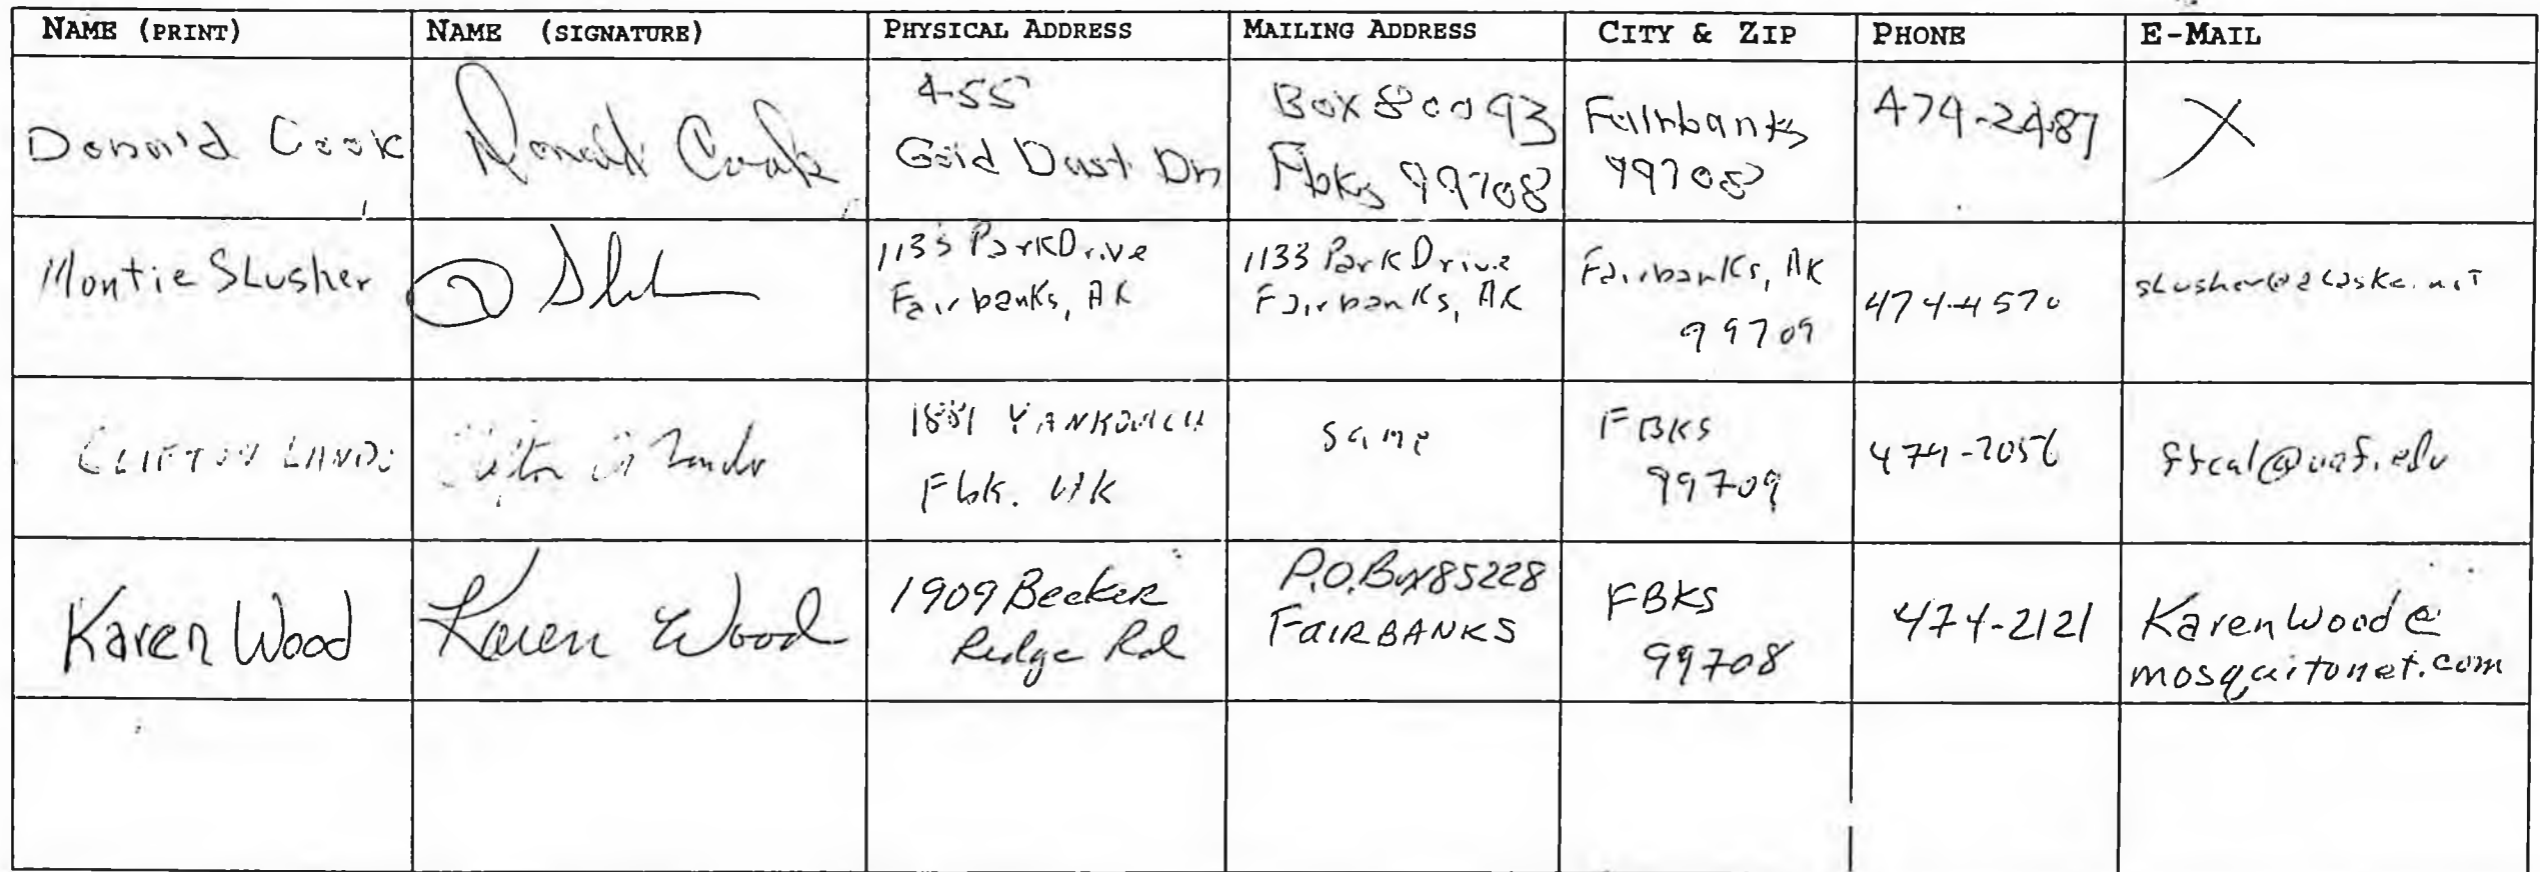 NAME (PRINT)
NAME (SIGNATURE)
PHYSICAL ADDRESS
MAILING ADDRESS
CITY & ZIP
PHONE
E-MAIL
Donald Cook
Donald Cook
455
Gold Dust Dr
Box 80093
Fbks 99708
Fairbanks
99708
474-2487
X
Montie Slusher
1133 Park Drive
Fairbanks, AK
1133 Park Drive
Fairbanks, AK
Fairbanks, AK
99709
474-4570
slusher@alaska.net
CLIFTON LANDO
1881 YANKOVICH
Fbk. AK
Same
FBKS
99709
474-7056
ffcal@uaf.edu
Karen Wood
Karen Wood
1909 Becker
Ridge Rd
P.O. Box 85228
FAIRBANKS
FBKS
99708
474-2121
Karenwood@
mosquitonet.com